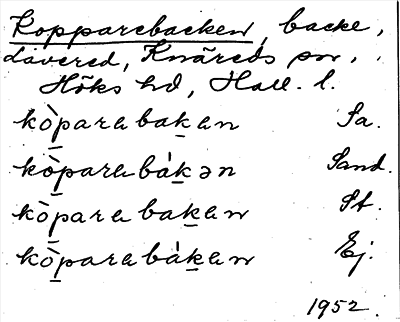 Kopparebacken, backe,
Lövered, Knäreds sn,
Höks hd, Hall. l.
kòparabakan Sa.
kòparabákən Sand.
kòparabakan St.
kòparabákan Ej.
1952.